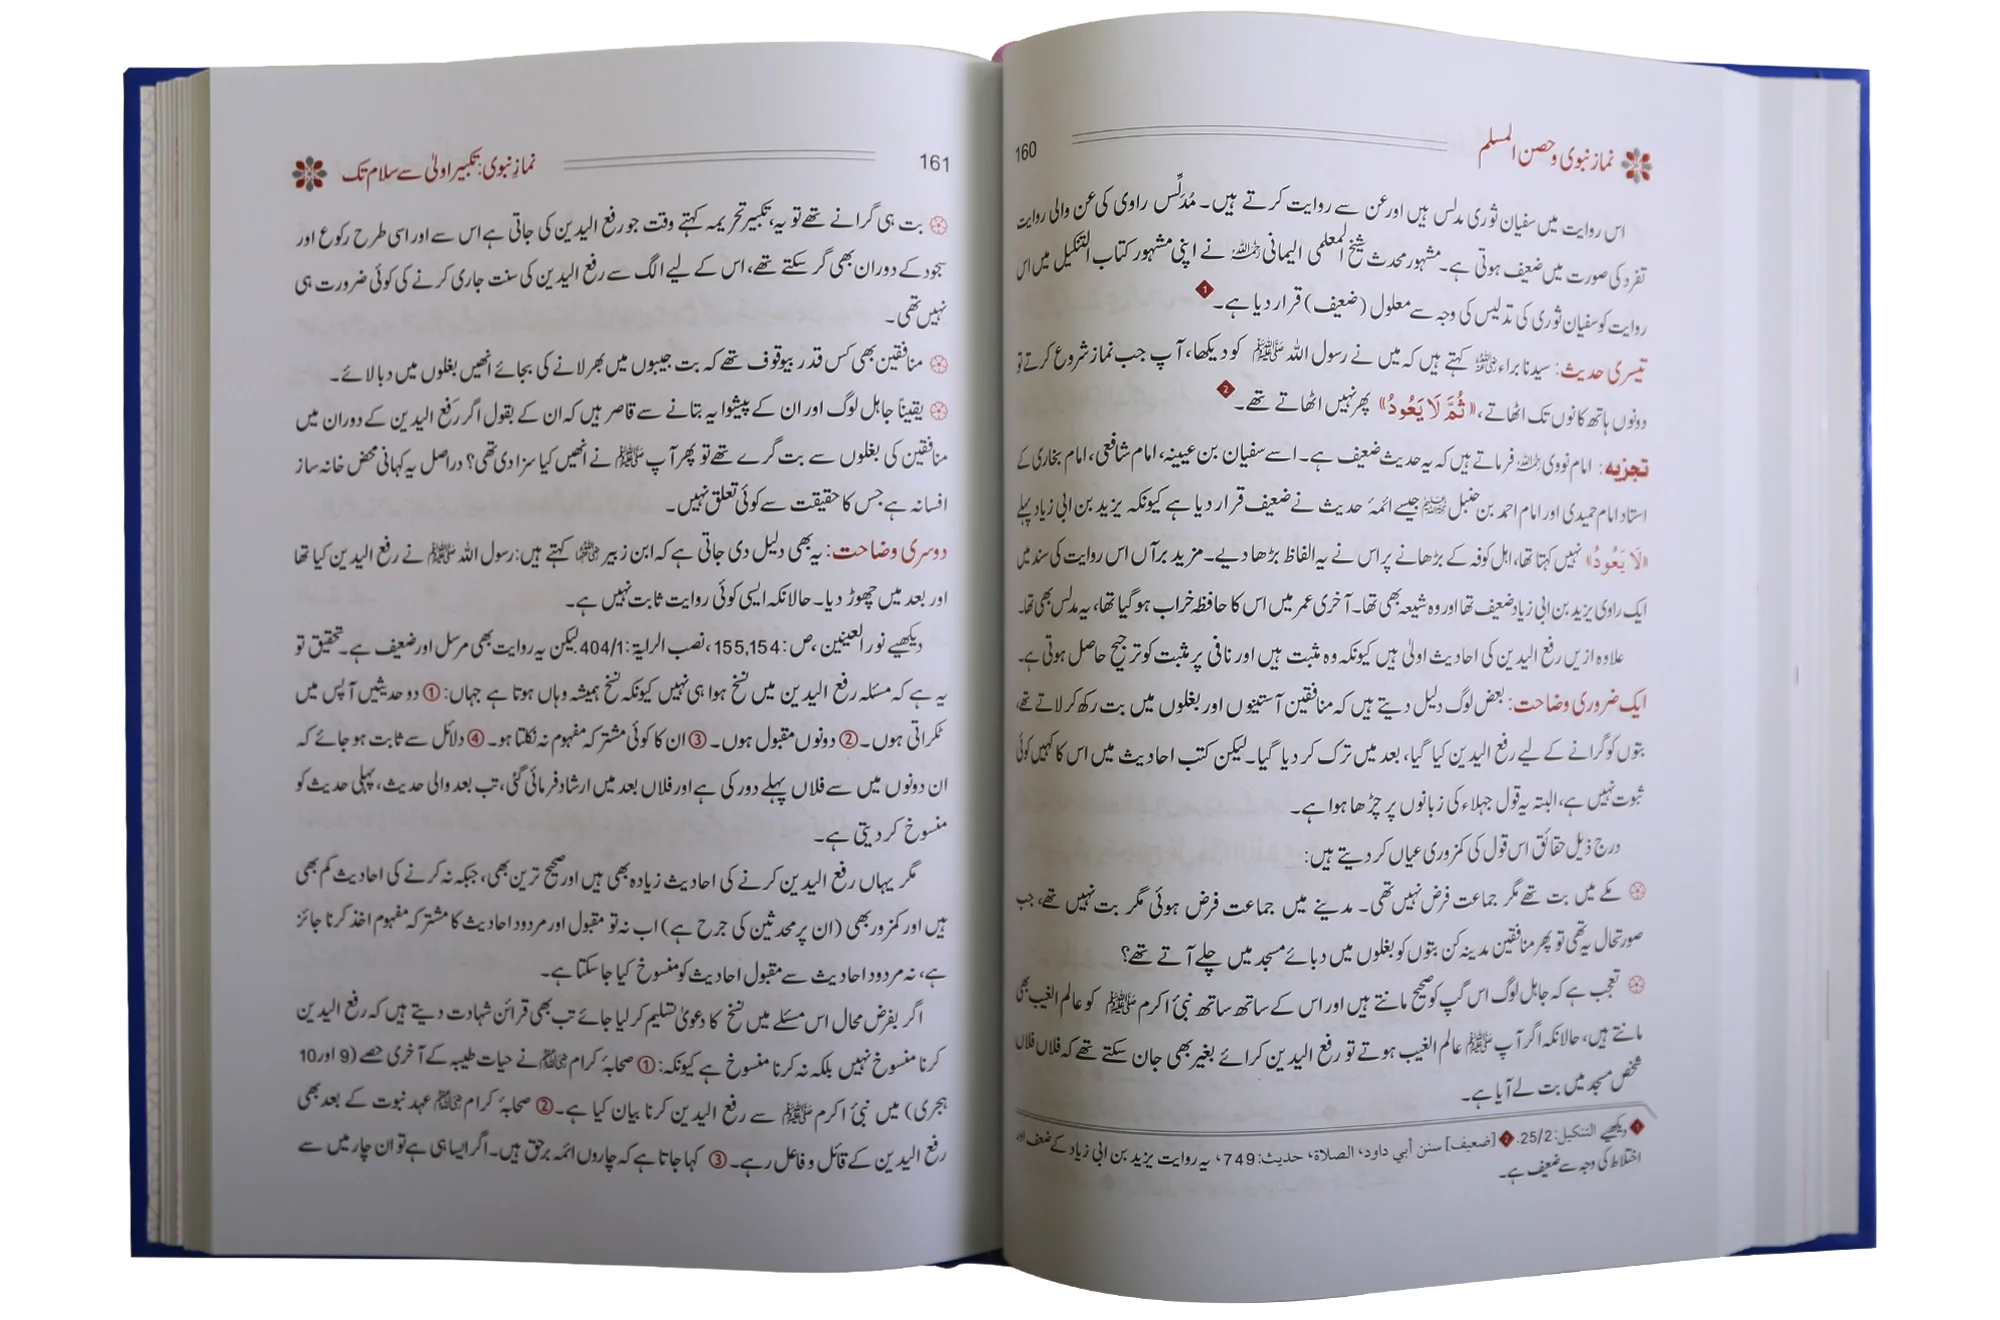 نماز نبوی و حصن المسلم
160
اس روایت میں سفیان ثوری مدلس ہیں اور عن سے روایت کرتے ہیں۔ مُدَلِّس راوی کی عن والی روایت
تفرد کی صورت میں ضعیف ہوتی ہے۔ مشہور محدث شیخ المعلمی الیمانی رحمہ اللہ نے اپنی مشہور کتاب التنکیل میں اس
روایت کو سفیان ثوری کی تدلیس کی وجہ سے معلول (ضعیف) قرار دیا ہے۔ 1
تیسری حدیث: سیدنا براء رضی اللہ عنہ کہتے ہیں کہ میں نے رسول اللہ ﷺ کو دیکھا، آپ جب نماز شروع کرتے تو
دونوں ہاتھ کانوں تک اٹھاتے، «ثُمَّ لَا يَعُودُ» پھر نہیں اٹھاتے تھے۔ 2
تجزیہ: امام نووی رحمہ اللہ فرماتے ہیں کہ یہ حدیث ضعیف ہے۔ اسے سفیان بن عیینہ، امام شافعی، امام بخاری کے
استاد امام حمیدی اور امام احمد بن حنبل رحمہم اللہ جیسے ائمۂ حدیث نے ضعیف قرار دیا ہے کیونکہ یزید بن ابی زیاد پہلے
«لَا يَعُودُ» نہیں کہتا تھا، اہل کوفہ کے بڑھانے پر اس نے یہ الفاظ بڑھا دیے۔ مزید برآں اس روایت کی سند میں
ایک راوی یزید بن ابی زیاد ضعیف تھا اور وہ شیعہ بھی تھا۔ آخری عمر میں اس کا حافظہ خراب ہو گیا تھا، یہ مدلس بھی تھا۔
علاوہ ازیں رفع الیدین کی احادیث اولیٰ ہیں کیونکہ وہ مثبت ہیں اور نافی پر مثبت کو ترجیح حاصل ہوتی ہے۔
ایک ضروری وضاحت: بعض لوگ دلیل دیتے ہیں کہ منافقین آستینوں اور بغلوں میں بت رکھ کر لاتے تھے،
بتوں کو گرانے کے لیے رفع الیدین کیا گیا، بعد میں ترک کر دیا گیا۔ لیکن کتب احادیث میں اس کا کہیں کوئی
ثبوت نہیں ہے، البتہ یہ قول جہلاء کی زبانوں پر چڑھا ہوا ہے۔
درج ذیل حقائق اس قول کی کمزوری عیاں کر دیتے ہیں:
مکے میں بت تھے مگر جماعت فرض نہیں تھی۔ مدینے میں جماعت فرض ہوئی مگر بت نہیں تھے، جب
صورتحال یہ تھی تو پھر منافقین مدینہ کن بتوں کو بغلوں میں دبائے مسجد میں چلے آتے تھے؟
تعجب ہے کہ جاہل لوگ اس گپ کو صحیح مانتے ہیں اور اس کے ساتھ ساتھ نبیٔ اکرم ﷺ کو عالم الغیب بھی
مانتے ہیں، حالانکہ اگر آپ ﷺ عالم الغیب ہوتے تو رفع الیدین کرائے بغیر بھی جان سکتے تھے کہ فلاں فلاں
شخص مسجد میں بت لے آیا ہے۔
1 دیکھیے التنکیل: 25/2. 2 [ضعیف] سنن أبي داود، الصلاة، حدیث: 749، یہ روایت یزید بن ابی زیاد کے ضعف اور
اختلاط کی وجہ سے ضعیف ہے۔
161
نمازِ نبوی: تکبیر اولیٰ سے سلام تک
بت ہی گرانے تھے تو یہ، تکبیر تحریمہ کہتے وقت جو رفع الیدین کی جاتی ہے اس سے اور اسی طرح رکوع اور
سجود کے دوران بھی گر سکتے تھے، اس کے لیے الگ سے رفع الیدین کی سنت جاری کرنے کی کوئی ضرورت ہی
نہیں تھی۔
منافقین بھی کس قدر بیوقوف تھے کہ بت جیبوں میں بھر لانے کی بجائے انھیں بغلوں میں دبا لائے۔
یقیناً جاہل لوگ اور ان کے پیشوا یہ بتانے سے قاصر ہیں کہ ان کے بقول اگر رفع الیدین کے دوران میں
منافقین کی بغلوں سے بت گرے تھے تو پھر آپ ﷺ نے انھیں کیا سزا دی تھی؟ دراصل یہ کہانی محض خانہ ساز
افسانہ ہے جس کا حقیقت سے کوئی تعلق نہیں۔
دوسری وضاحت: یہ بھی دلیل دی جاتی ہے کہ ابن زبیر رضی اللہ عنہما کہتے ہیں: رسول اللہ ﷺ نے رفع الیدین کیا تھا
اور بعد میں چھوڑ دیا۔ حالانکہ ایسی کوئی روایت ثابت نہیں ہے۔
دیکھیے نور العینین، ص: 155,154، نصب الرایة: 404/1 لیکن یہ روایت بھی مرسل اور ضعیف ہے۔ تحقیق تو
یہ ہے کہ مسئلہ رفع الیدین میں نسخ ہوا ہی نہیں کیونکہ نسخ ہمیشہ وہاں ہوتا ہے جہاں: ① دو حدیثیں آپس میں
ٹکراتی ہوں۔ ② دونوں مقبول ہوں۔ ③ ان کا کوئی مشترکہ مفہوم نہ نکلتا ہو۔ ④ دلائل سے ثابت ہو جائے کہ
ان دونوں میں سے فلاں پہلے دور کی ہے اور فلاں بعد میں ارشاد فرمائی گئی، تب بعد والی حدیث، پہلی حدیث کو
منسوخ کر دیتی ہے۔
مگر یہاں رفع الیدین کرنے کی احادیث زیادہ بھی ہیں اور صحیح ترین بھی، جبکہ نہ کرنے کی احادیث کم بھی
ہیں اور کمزور بھی (ان پر محدثین کی جرح ہے) اب نہ تو مقبول اور مردود احادیث کا مشترکہ مفہوم اخذ کرنا جائز
ہے، نہ مردود احادیث سے مقبول احادیث کو منسوخ کیا جا سکتا ہے۔
اگر بفرض محال اس مسئلے میں نسخ کا دعویٰ تسلیم کر لیا جائے تب بھی قرائن شہادت دیتے ہیں کہ رفع الیدین
کرنا منسوخ نہیں بلکہ نہ کرنا منسوخ ہے کیونکہ: ① صحابۂ کرام رضی اللہ عنہم نے حیات طیبہ کے آخری حصے (9 اور 10
ہجری) میں نبیٔ اکرم ﷺ سے رفع الیدین کرنا بیان کیا ہے۔ ② صحابۂ کرام رضی اللہ عنہم عہد نبوت کے بعد بھی
رفع الیدین کے قائل و فاعل رہے۔ ③ کہا جاتا ہے کہ چاروں ائمہ برحق ہیں۔ اگر ایسا ہی ہے تو ان چار میں سے